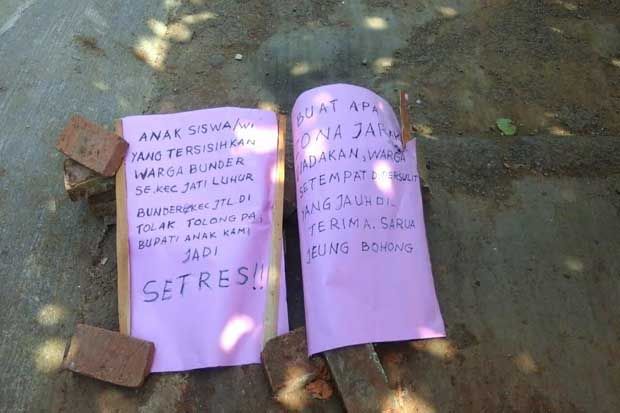 ANAK SISWA/WI
YANG TERSISIHKAN
WARGA BUNDER
SE.KEC JATI LUHUR
BUNDER KEC JTL. DI
TOLAK TOLONG PA,
BUPATI ANAK KAMI
JADI
SETRES!!
BUAT APA
ZONA JARAK
ADAKAN, WARGA
SETEMPAT DIPERSULIT
YANG JAUH DI
TERIMA. SARUA
JEUNG BOHONG